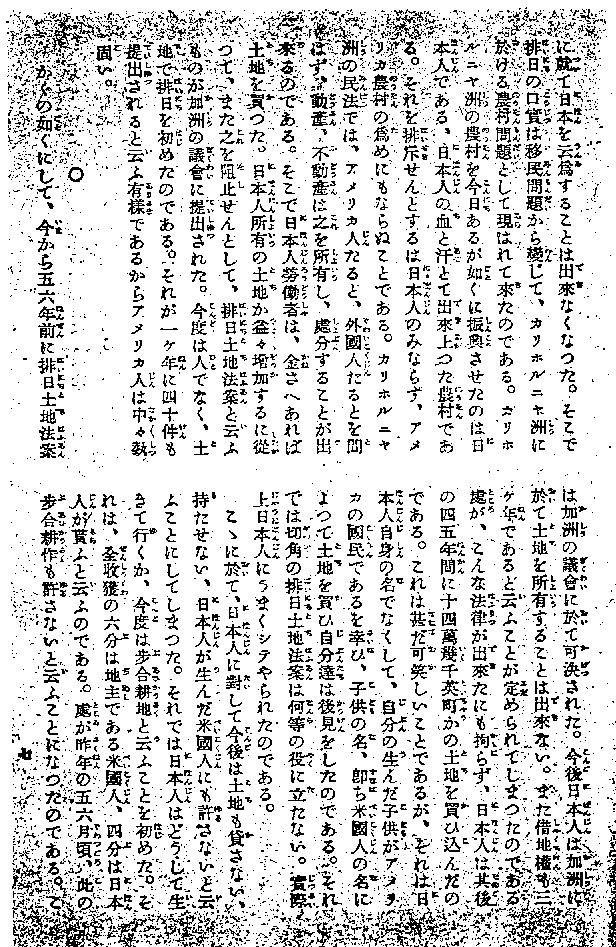 に就て日本を云爲することは出來なくなつた。そこで
排日の口實は移民問題から變じて、カリホルニヤ洲に
於ける農村問題として現はれて來たのである。カリホ
ルニヤ洲の農村を今日あるが如くに振興させたのは日
本人である、日本人の血と汗とで出來上つた農村であ
る。それを排斥せんとするは日本人のみならず、アメ
リカ農村の爲めにもならぬことである。カリホルニヤ
洲の民法では、アメリカ人たると、外國人たるとを問
はず、動產、不動產は之を所有し、處分することが出
來るのである。そこで日本人勞働者は、金さへあれば
土地を買つた。日本人所有の土地が益々增加するに從
つて、また之を阻止せんとして、排日土地法案と云ふ
ものが加洲の議會に提出された。今度は人でなく、土
地で排日を初めたのである。それが一ケ年に四十件も
提出されると云ふ有樣であるからアメリカ人は中々執
固い。
○
かくの如くにして、今から五六年前に排日土地法案
は加洲の議會に於て可決された。今後日本人は加洲に
於て土地を所有することは出來ない。また借地權も三
ケ年であると云ふことが定められてしまつたのである
處が、こんな法律が出來たにも拘らず、日本人は其後
の四五年間に十四萬幾千英町かの土地を買ひ込んだの
である。これは甚だ可笑しいことであるが、それは日
本人自身の名でなくして、自分の生んだ子供がアメリ
カの國民であるを幸ひ、子供の名、卽ち米國人の名に
よつて土地を買ひ自分達は後見をしたのである。それ
では切角の排日土地法案は何等の役に立たない。實際
上日本人にうまくシテやられたのである。
こゝに於て、日本人に對して今後は土地も貸さない、
持たせない、日本人が生んだ米國人にも許さないと云
ふことにしてしまつた。それでは日本人はどうして生
きて行くか、今度は步合耕地と云ふことを初めた。そ
れは、全收獲の六分は地主である米國人、四分は日本
人が貰ふと云ふのである。處が昨年の五六月頃、此の
步合耕作も許さないと云ふことになつたのである。こ
七